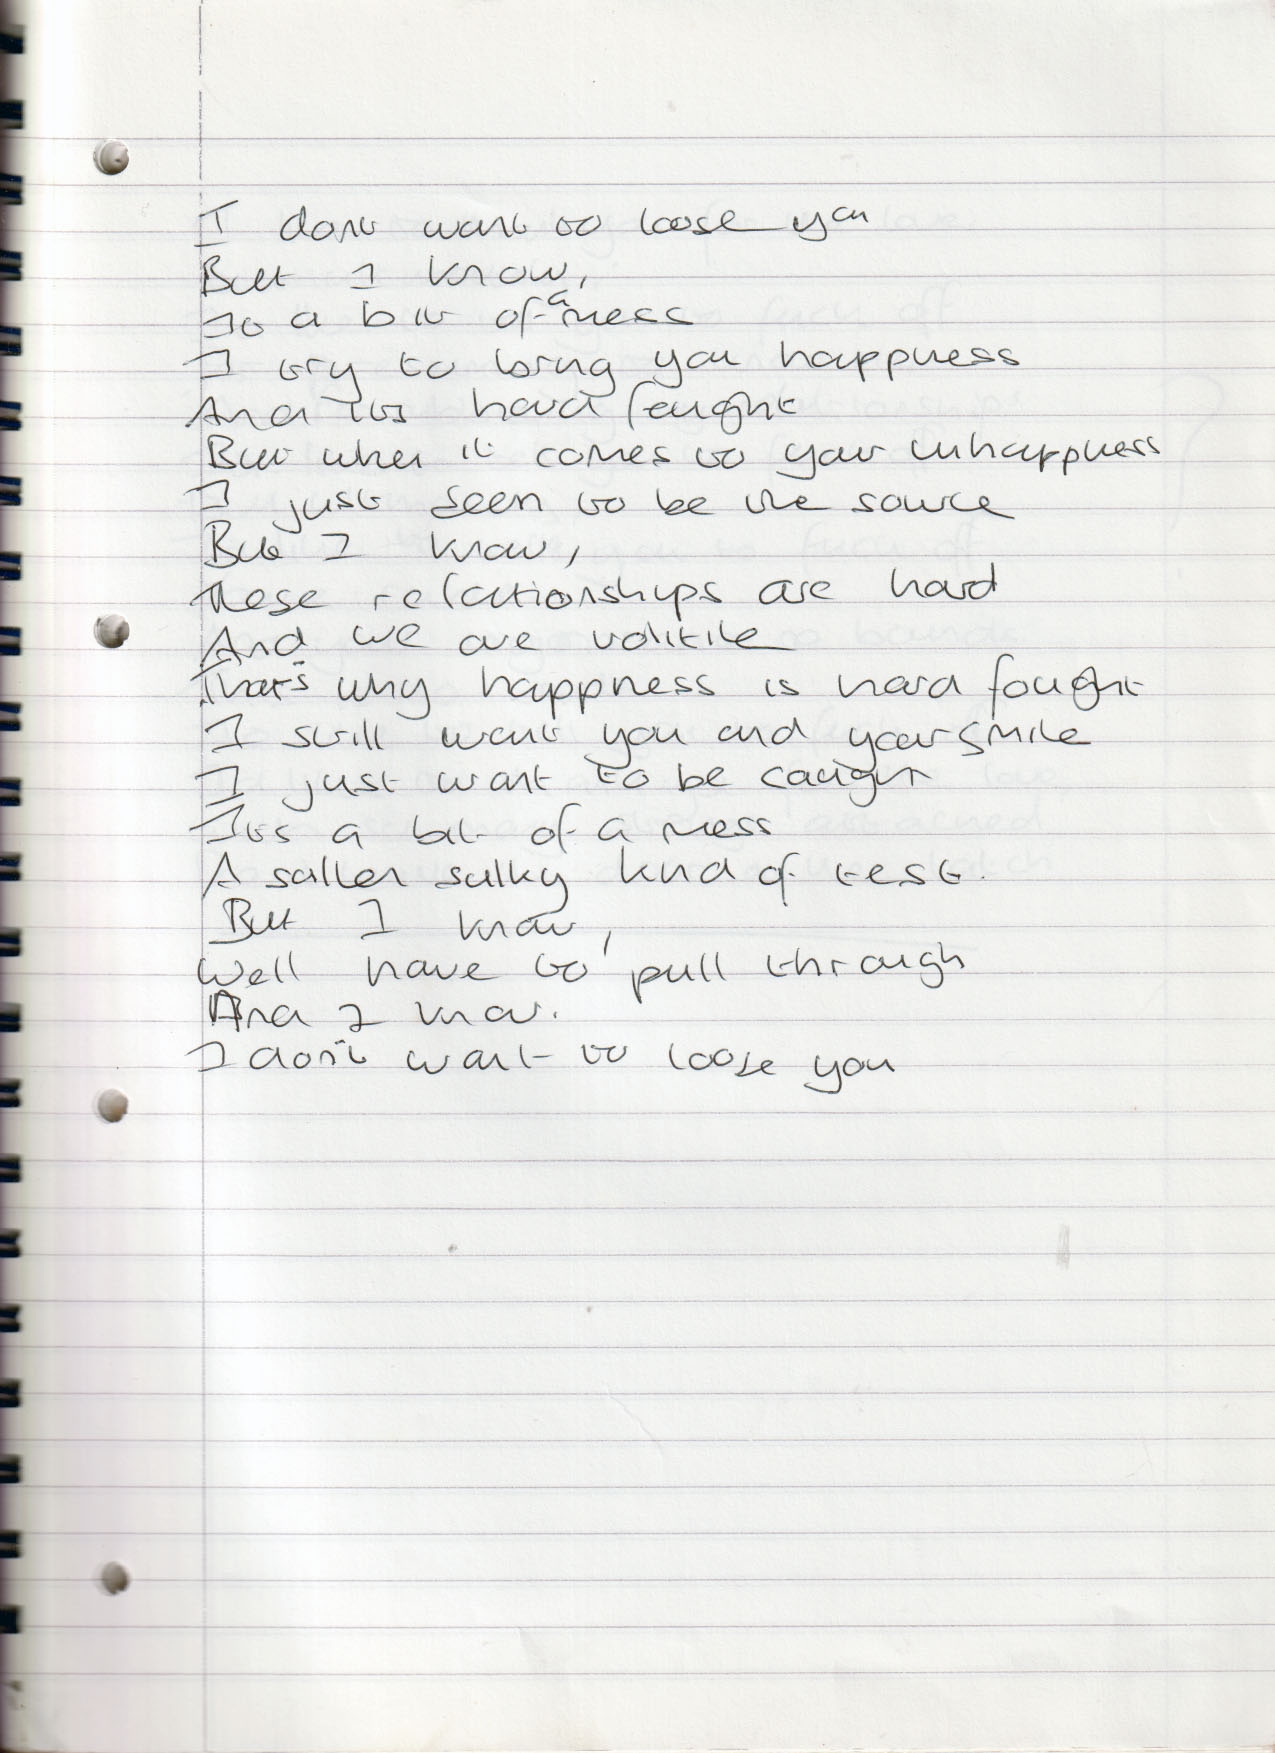 I dont want to loose you
But I know,
Its a bit of a mess
I try to bring you happness
And its hard fought
But when it comes to your unhappness
I just seem to be the source
But I know,
These relationships are hard
And we are volitile
That's why happness is hard fought
I still want you and your smile
I just want to be caught
Its a bit of a mess
A sullen sulky kind of test.
But I know,
Well have to pull through
And I know.
I don't want to loose you